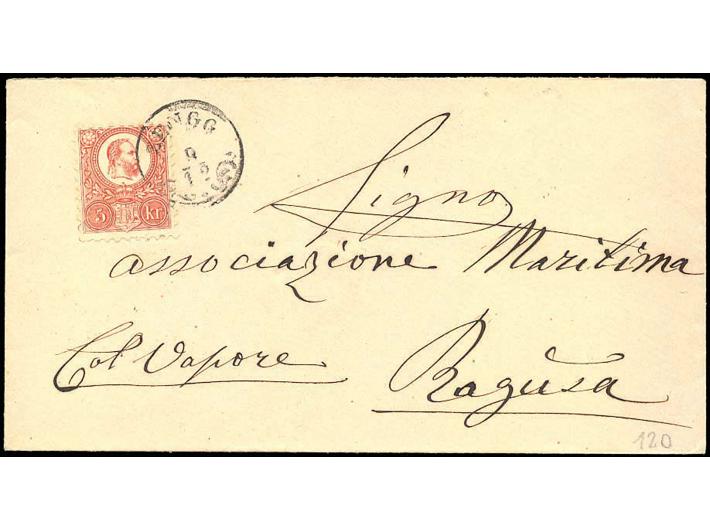 ZENGG
9
12
5 kr
Signo.
Associazione Maritima
Col Vapore
Ragusa
120